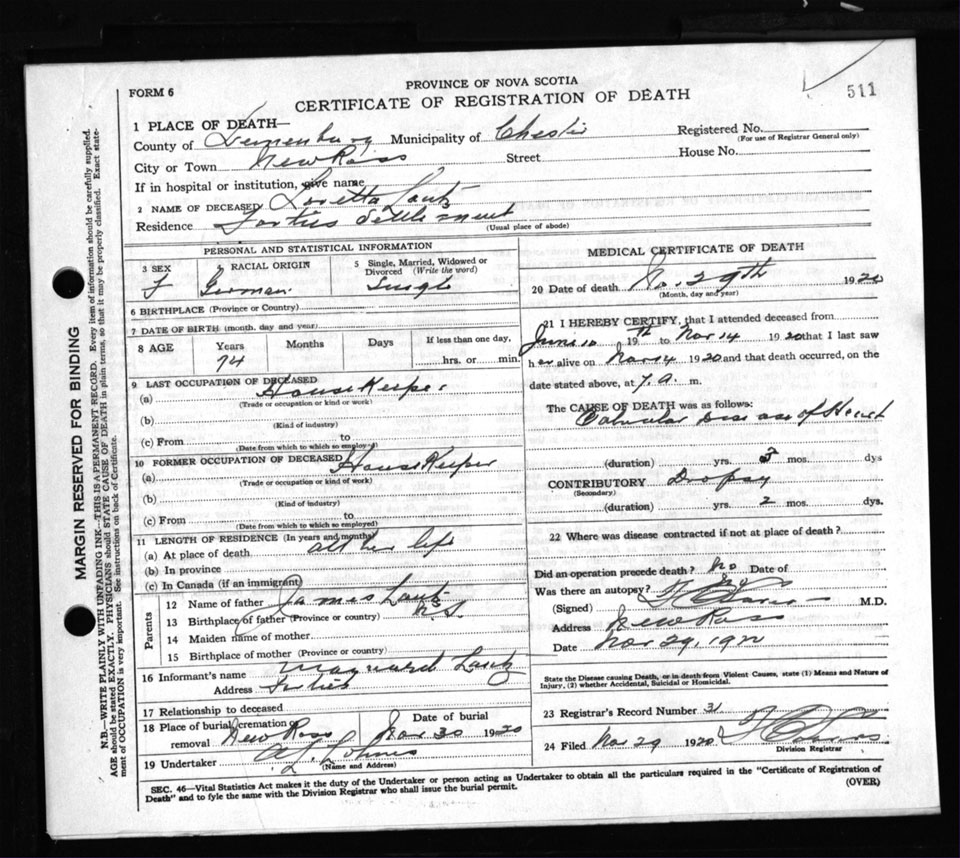 PROVINCE OF NOVA SCOTIA
FORM 6
CERTIFICATE OF REGISTRATION OF DEATH
511
1 PLACE OF DEATH—
County of Lunenburg Municipality of Chester Registered No.
(For use of Registrar General only)
City or Town New Ross Street House No.
If in hospital or institution, give name
2 NAME OF DECEASED Loretta Lantz
Residence Forties Settlement
(Usual place of abode)
PERSONAL AND STATISTICAL INFORMATION
3 SEX F
4 RACIAL ORIGIN German
5 Single, Married, Widowed or Divorced (Write the word) Single
6 BIRTHPLACE (Province or Country)
7 DATE OF BIRTH (month, day and year)
8 AGE Years 74 Months Days If less than one day, hrs. or min.
9 LAST OCCUPATION OF DECEASED
(a) House Keeper
(Trade or occupation or kind or work)
(b)
(Kind of industry)
(c) From to
(Date from which to which so employed)
10 FORMER OCCUPATION OF DECEASED
(a) House Keeper
(Trade or occupation or kind of work)
(b)
(Kind of industry)
(c) From to
(Date from which to which so employed)
11 LENGTH OF RESIDENCE (In years and months)
(a) At place of death all her life
(b) In province
(c) In Canada (if an immigrant)
Parents
12 Name of father James Lantz
13 Birthplace of father (Province or country) N.S.
14 Maiden name of mother
15 Birthplace of mother (Province or country)
16 Informant's name Maynard Lantz
Address Forties
17 Relationship to deceased
18 Place of burial, cremation or removal New Ross Date of burial Nov 30 1920
19 Undertaker
(Name and Address)
MEDICAL CERTIFICATE OF DEATH
20 Date of death No. 29th 1920
(Month, day and year)
21 I HEREBY CERTIFY, that I attended deceased from
June 10th 19 to Nov 14 1920 that I last saw
her alive on Nov 14 1920 and that death occurred, on the
date stated above, at 7. a. m.
The CAUSE OF DEATH was as follows:
Valvular Disease of Heart
(duration) yrs. 5 mos. dys
CONTRIBUTORY Dropsy
(Secondary)
(duration) yrs. 2 mos. dys.
22 Where was disease contracted if not at place of death?
Did an operation precede death? No Date of
Was there an autopsy? No
(Signed) M.D.
Address New Ross
Date Nov 29, 1920
State the Disease causing Death, or in death from Violent Causes, state (1) Means and Nature of
Injury, (2) whether Accidental, Suicidal or Homicidal.
23 Registrar's Record Number 31
24 Filed Nov 29 1920
Division Registrar
SEC. 46—Vital Statistics Act makes it the duty of the Undertaker or person acting as Undertaker to obtain all the particulars required in the "Certificate of Registration of
Death" and to fyle the same with the Division Registrar who shall issue the burial permit.
(OVER)
MARGIN RESERVED FOR BINDING
N.B.—WRITE PLAINLY WITH UNFADING INK—THIS IS A PERMANENT RECORD. Every item of information should be carefully supplied.
AGE should be stated EXACTLY. PHYSICIANS should STATE CAUSE OF DEATH in plain terms, so that it may be properly classified. Exact statement
of OCCUPATION is very important. See instructions on back of Certificate.